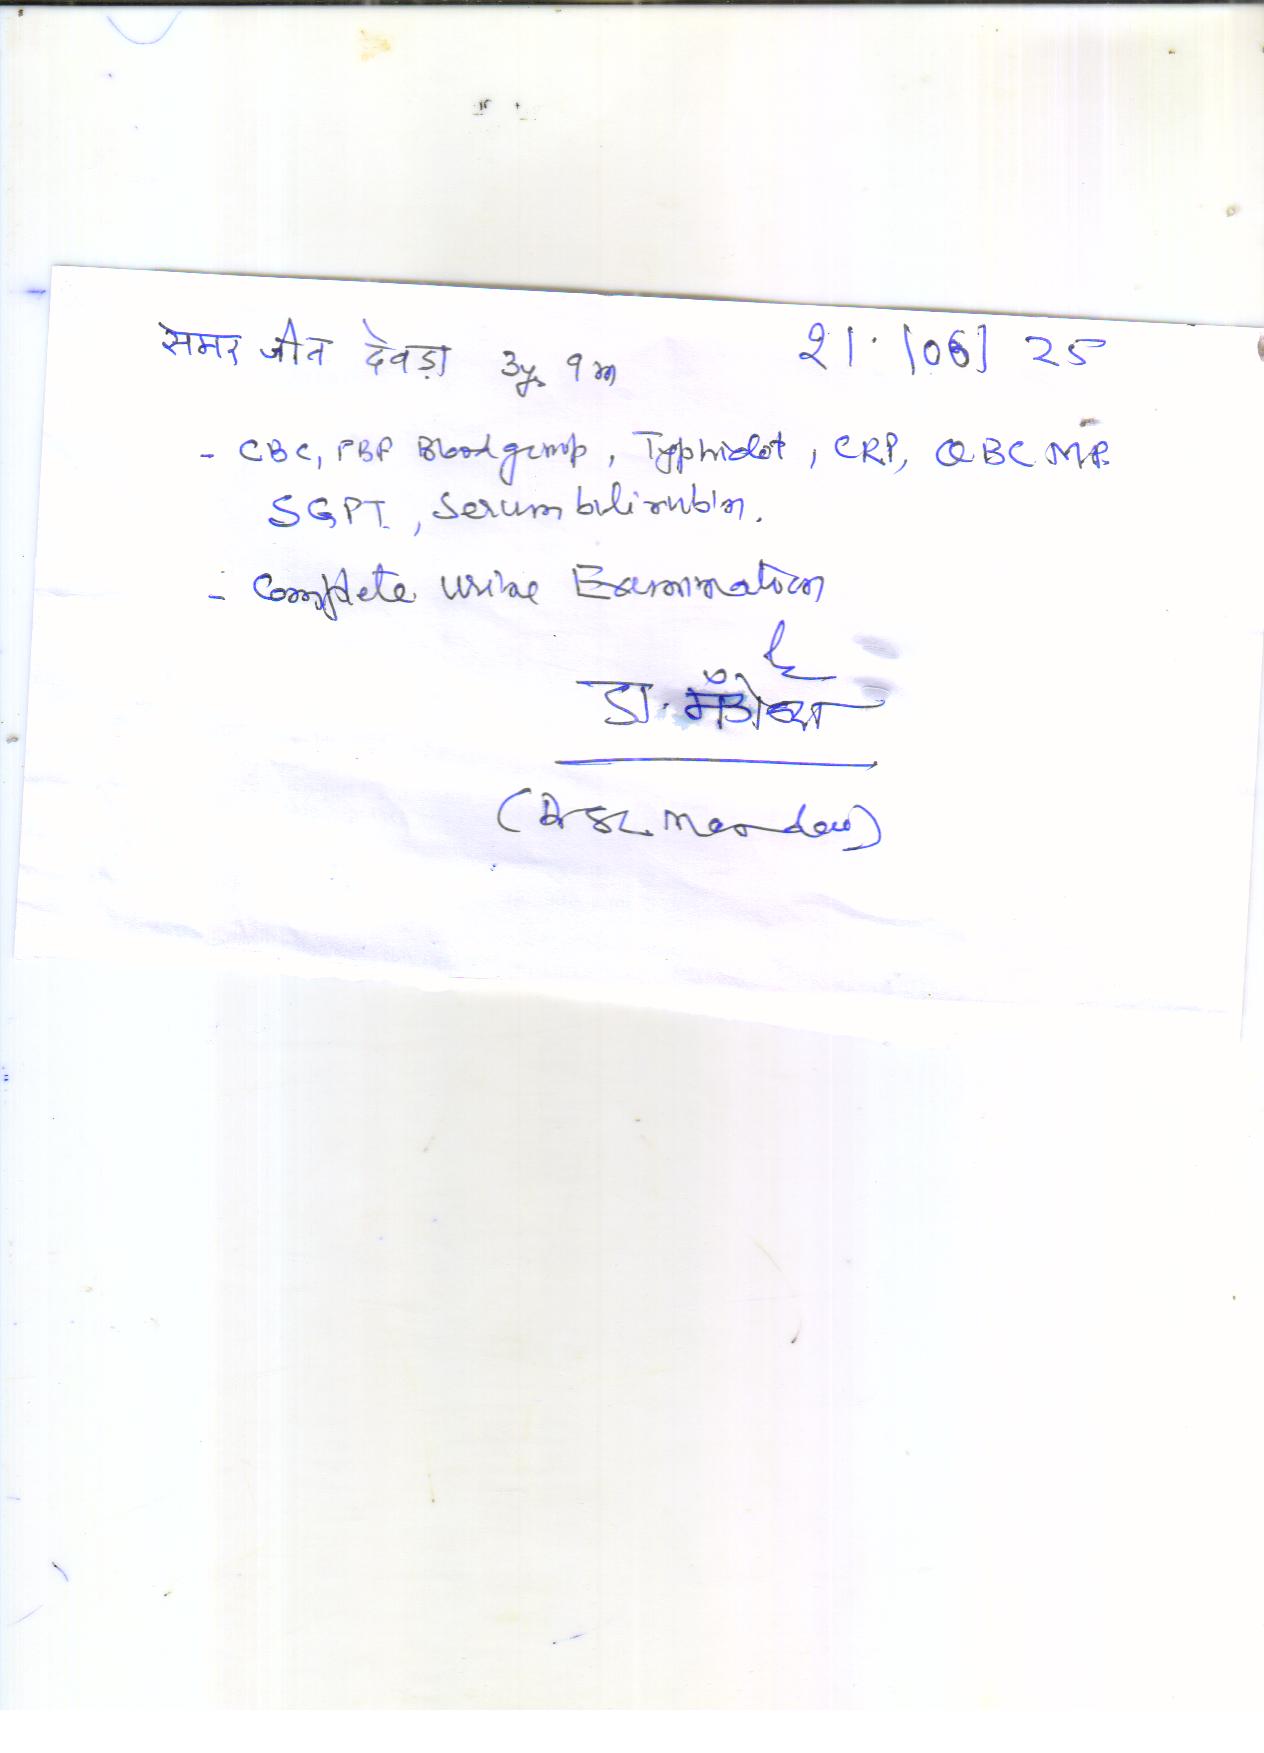 समर जीत देवड़ा 3y 9m 21. |06| 25
- CBC, PBF Blood group, Typhidot, CRP, QBC MP.
SGPT, Serum bilirubin.
- Complete Urine Examination
डा.
(Dr SL